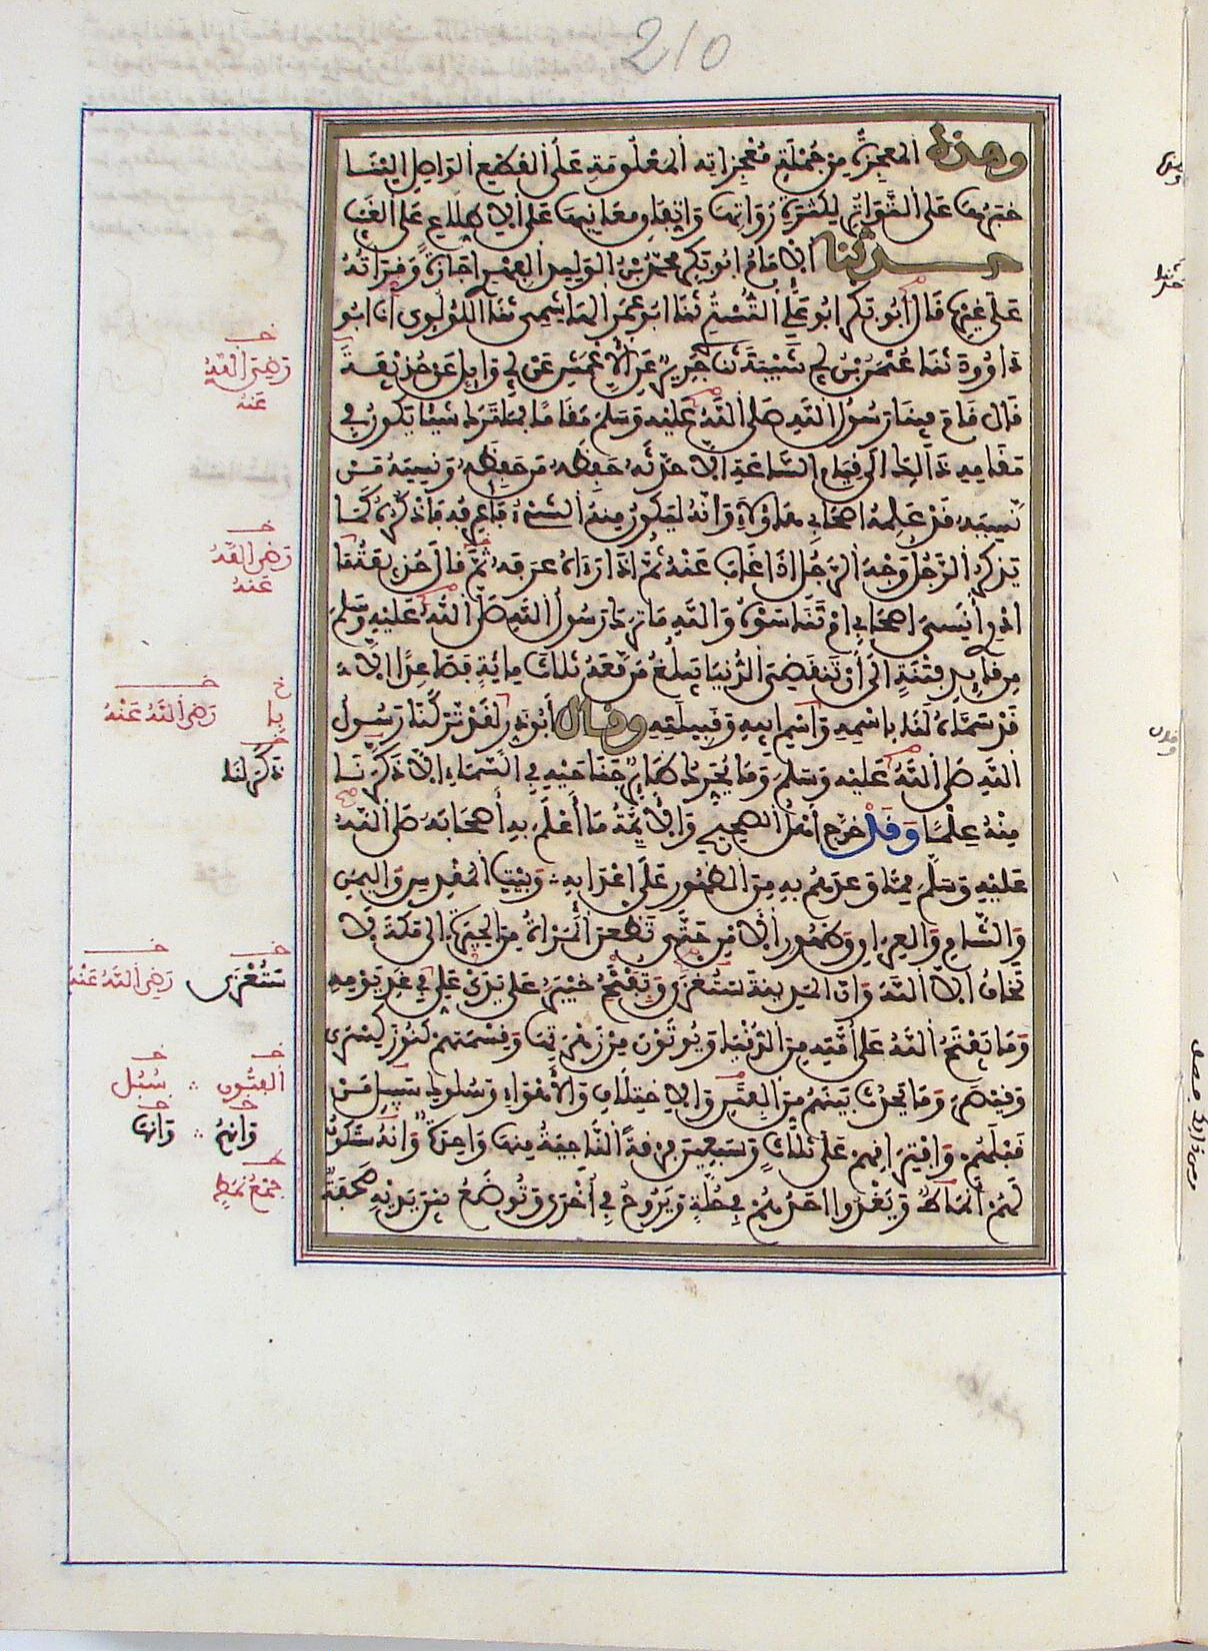 210
وهذه المعجزة من جملة معجزاته المعلومة على القطع الواصل الينا
خبرها على التواتر لكثرة رواتها واتفاق معانيها على الاطلاع على الغيب
حدثنا الامام ابو بكر محمد بن الوليد الفهري اجازة وقراته
على غيره قال ابو بكر ابو علي التستري ثنا ابو عمر الهاشمي ثنا اللؤلوي انا ابو
داوود ثنا عثمن بن ابي شيبة ثنا جرير عن الاعمش عن ابي وايل عن حذيفة
قال قام فينا رسول الله صلى الله عليه وسلم مقاما فما ترك شيئا يكون في
مقامه ذالك الى قيام الساعة الا حدثه حفظه من حفظه ونسيه من
نسيه قد علمه اصحابي هاولاء وانه ليكون منه الشيء فاعرفه فاذكره كما
يذكر الرجل وجه الرجل اذا غاب عنه ثم اذا رءاه عرفه ثم قال حذيفة ما
ادري أنسي اصحابي ام تناسوه والله ما ترك رسول الله صلى الله عليه وسلم
من قايد فتنة الى أن تنقضي الدنيا يبلغ من معه ثلاث مائة فصاعدا الا
قد سماه لنا باسمه واسم ابيه وقبيلته وقال أبو ذر لقد تركنا رسول
الله صلى الله عليه وسلم وما يحرك طاير جناحيه في السماء الا ذكرنا
منه علما وقد خرج أهل الصحيح والايمة ما أعلم به أصحابه صلى الله
عليه وسلم مما وعدهم به من الظهور على اعدايه وبيت المقدس واليمن
والشام والعراق وظهور الامن حتى تظعن المرأة من الحيرة الى مكة لا
تخاف الا الله وان المدينة ستغزى وتفتح خيبر على يدي علي في غد يومه
وما يفتح الله على أمته من الدنيا ويوتون من زهرتها وقسمتهم كنوز كسرى
وقيصر وما يحدث بينهم من الفتن والاختلاف والاهواء وسلوك سبيل من
قبلهم وافتراقهم على ثلاث وسبعين فرقة الناجية منها واحدة وانه ستكون
لهم أنماط ويغدوا احدهم في حلة ويروح في أخرى وتوضع بين يديه صحفة
خـ
رضي الله
عنه
خـ
رضي الله
عنه
خ
يا
خـ
رضي الله عنه
خـ
ذكر لنا
خـ
ستغزى
خـ
رضي الله عنه
خـ
الفتون
خـ
سبل
خـ
وانهم
خـ
وانها
جمع نمط